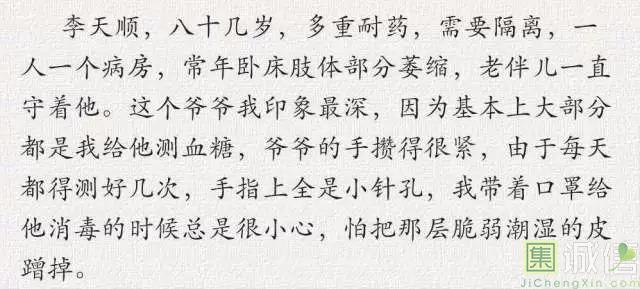 李天顺，八十几岁，多重耐药，需要隔离，一
人一个病房，常年卧床肢体部分萎缩，老伴儿一直
守着他。这个爷爷我印象最深，因为基本上大部分
都是我给他测血糖，爷爷的手攒得很紧，由于每天
都得测好几次，手指上全是小针孔，我带着口罩给
他消毒的时候总是很小心，怕把那层脆弱潮湿的皮
蹭掉。
集 诚信
JiChengXin.com